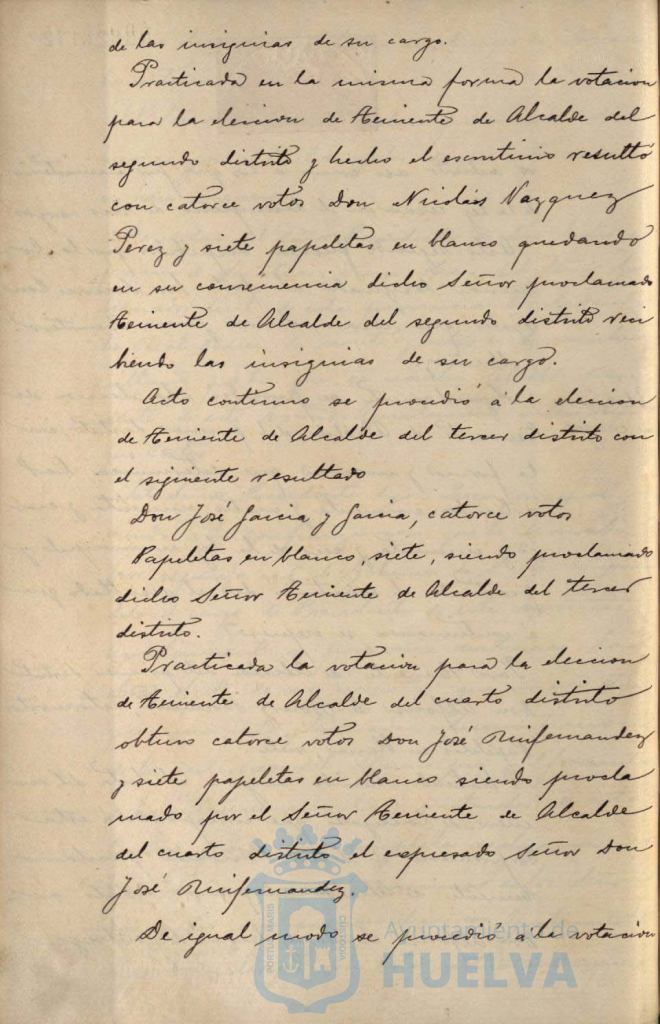 de las insignias de su cargo.
Practicada en la misma forma la votacion
para la eleccion de Teniente de Alcalde del
segundo distrito y hecho el escrutinio resultó
con catorce votos Don Nicolás Vazquez
Perez y siete papeletas en blanco quedando
en su consecuencia dicho Señor proclamado
Teniente de Alcalde del segundo distrito reci
biendo las insignias de su cargo.
Acto continuo se procedió á la eleccion
de Teniente de Alcalde del tercer distrito con
el siguiente resultado
Don José Garcia y Garcia, catorce votos
Papeletas en blanco, siete, siendo proclamado
dicho Señor Teniente de Alcalde del tercer
distrito.
Practicada la votacion para la eleccion
de Teniente de Alcalde del cuarto distrito
obtuvo catorce votos Don José Ruifernandez
y siete papeletas en blanco siendo procla
mado por el Señor Teniente de Alcalde
del cuarto distrito el expresado Señor Don
José Ruifernandez.
De igual modo se procedió á la votacion
PORTUS MARIS
CUSTODIA
Ayuntamiento de
HUELVA